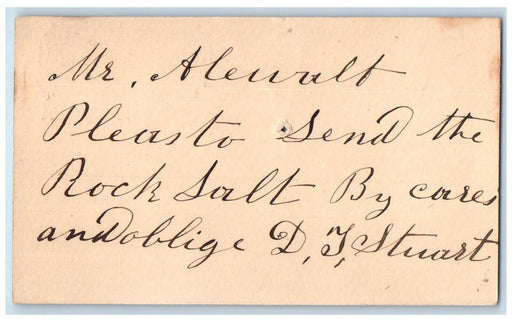 Mr. Alewalt
Pleas to Send the
Rock Salt By cares
and oblige D, T, Stuart